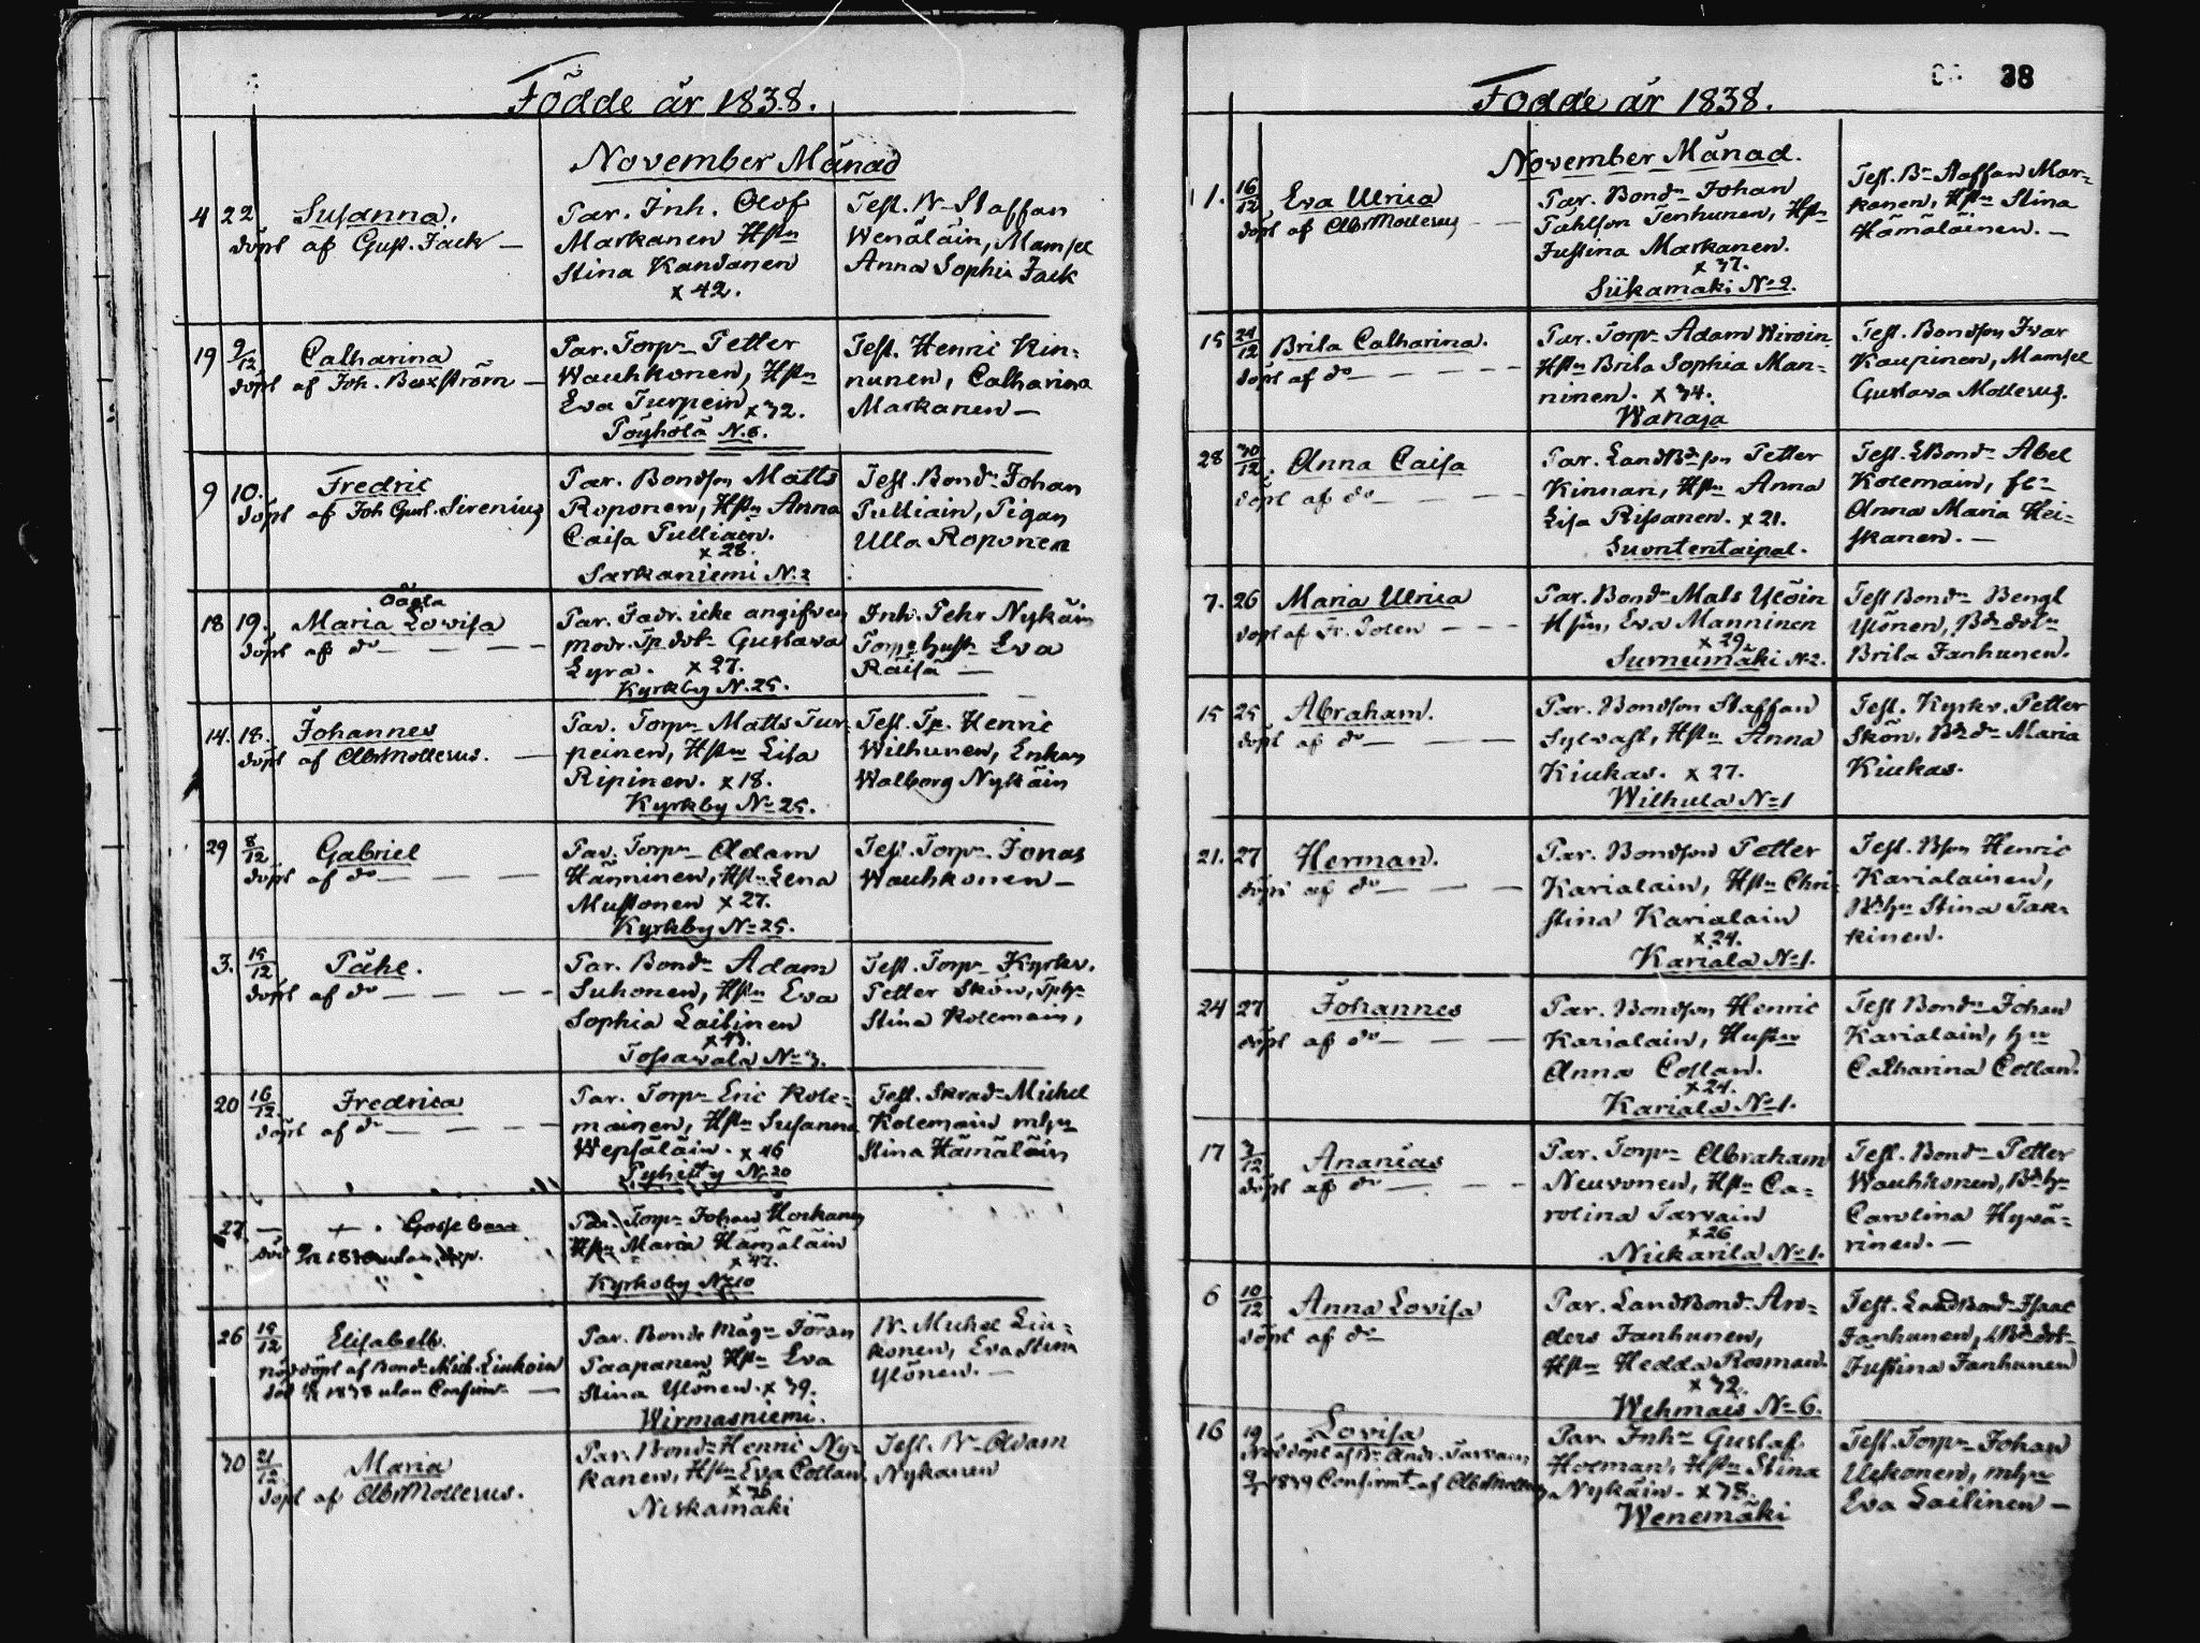 Födde år 1838.
November Månad
4 22 Susanna.
döpt af Gust. Jack —
Par. Inh. Olof
Markanen Hstn
Stina Kandanen
x 42.
Test. Bn Staffan
Wenäläin, Mamsel
Anna Sophia Jack
19 9/12 Catharina
döpt af Joh. Baxström —
Par. Torpn Petter
Wauhkonen, Hstn
Eva Turpein x 32.
Pöyhölä N.6.
Test. Henric Kin-
nunen, Catharina
Markanen —
9 10. Fredric
döpt af Joh Gust. Sirenius
Par. Bondson Matts
Roponen, Hstn Anna
Caisa Pulliain.
x 28.
Sarkaniemi N.2
Test. Bondn Johan
Pulliain, Pigan
Ulla Roponen
18 19. Oägta
Maria Lovisa
döpt af do — — —
Par. Fadr. icke angifven
modr. Tp. dotr Gustava
Lyra. x 27.
Kyrkby N. 25.
Inh. Pehr Nykäin
Torpe hustr Eva
Räisä —
14. 18. Johannes
döpt af Alb Mollerus. —
Par. Torpn Matts Tur-
peinen, Hstn Lisa
Ripinen. x 18.
Kyrkby No 25.
Test. Tp. Henric
Wilhunen, Enkan
Walborg Nykäin
29 8/12 Gabriel
döpt af do — — —
Par. Torpn Adam
Hänninen, Hstn Lena
Mustonen x 27.
Kyrkby No 25.
Test. Torpn Jonas
Wauhkonen —
3. 15/12 Påhl.
döpt af do — — —
Par. Bondn Adam
Suhonen, Hstn Eva
Sophia Laitinen
x 43.
Tossavala No 3.
Test. Torpn Kyrkv.
Petter Skön, Tphn
Stina Kolemain,
20 16/12 Fredrica
döpt af do — — —
Par. Torpn Eric Kole-
mainen, Hstn Susanna
Wepsäläin. x 46
Pyhitty No 20
Test. Skradn Michel
Kolemain mhn
Stina Hämäläin
27. — + . Gosse barn
död utan dop.
Par. Torpn Johan Horkanen
Hstn Maria Hämäläin
x 47.
Kyrkoby No 10
26 15/12 Elisabeth.
nöddöpt af Bondn Mich. Liukoin
död 1838 utan Confirmn —
Par. Bonde Mågn Jöran
Paapanen Hstn Eva
Stina Ylönen. x 39.
Wirmasniemi.
Bn Michel Liu-
konen, Eva Stina
Ylönen. —
30 21/12 Maria
döpt af Alb Mollerus.
Par. Bondn Henric Ny-
kanen, Hstn Eva Collan
x 36
Niskamäki
Test. Bn Adam
Nykanen
38
Födde år 1838.
November Månad.
1. 16/12 Eva Ulrica
döpt af Alb Mollerus — —
Par. Bondn Johan
Påhlson Tenhunen, Hstn
Justina Markanen.
x 37.
Siikamäki No 2.
Test. Bn Staffan Mar-
kanen, Hstn Stina
Hämäläinen. —
15 24/12 Brita Catharina.
döpt af do — — — —
Par. Torpn Adam Wiroin
Hstn Brita Sophia Man-
ninen. x 34.
Wanaja
Test. Bondson Ivar
Kaupinen, Mamsel
Gustava Mollerus.
28 30/12. Anna Caisa
döpt af do — — — —
Par. LandBdson Petter
Kinnari, Hstn Anna
Lisa Rissanen. x 21.
Suontentaipal.
Test. LBondn Abel
Kolemain,
Anna Maria Hei-
skanen. —
7. 26 Maria Ulrica
döpt af Fr. Polen — — —
Par. Bondn Mats Ylöin
Hstn, Eva Manninen
x 29.
Surnumäki N 2.
Test Bondn Bengt
Ylönen, Bd dotn
Brita Janhunen.
15 25 Abraham.
döpt af do — — —
Par. Bondson Staffan
Sylvast, Hstn Anna
Kiukas. x 27.
Wilhula No 1
Test. Kyrkv. Petter
Skön, Bdn Maria
Kiukas.
21. 27 Herman.
döpt af do — — —
Par. Bondson Petter
Karialain, Hstn Chri-
stina Karialain
x 24.
Kariala No 1.
Test. Bson Henric
Karialainen,
Bdhn Stina Tar-
kinen.
24 27 Johannes
döpt af do — — —
Par. Bondson Henric
Karialain, Hustn
Anna Collan.
x 24.
Kariala No 1.
Test Bondn Johan
Karialain, hn
Catharina Collan.
17 3/12 Ananias
döpt af do — — —
Par. Torpn Abraham
Neuvonen, Hstn Ca-
rolina Tarvain
x 26
Niekarila No 1.
Test. Bondn Petter
Wauhkonen, Bdhn
Carolina Hyvä-
rinen. —
6 10/12 Anna Lovisa
döpt af do
Par. LandBondn An-
ders Janhunen,
Hstn Hedda Rosman.
x 32.
Wehmais No 6.
Test. LandBondn Isaac
Janhunen, LBd dotn
Justina Janhunen
16 19 Lovisa
Nöddöpt af Bn Andr. Tarvain
1839 Confirmt af Alb Mollerus
Par. Inhn Gustaf
Holman, Hstn Stina
Nykäin. x 38.
Wenemäki
Test. Torpn Johan
Uskonen, mhn
Eva Laitinen —